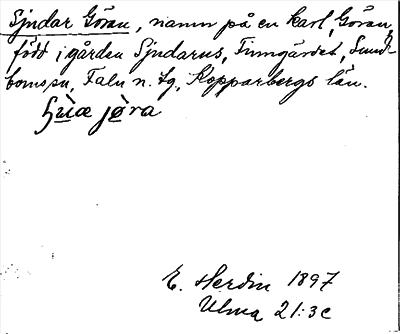 Sjndar Göran, namn på en karl, Göran,
född i gården Sjndarus, Finngärdet, Sund-
bornssn, Falu n. tg, Kopparbergs län.
jøra
E. Herdin 1897
Ulma 21:3c